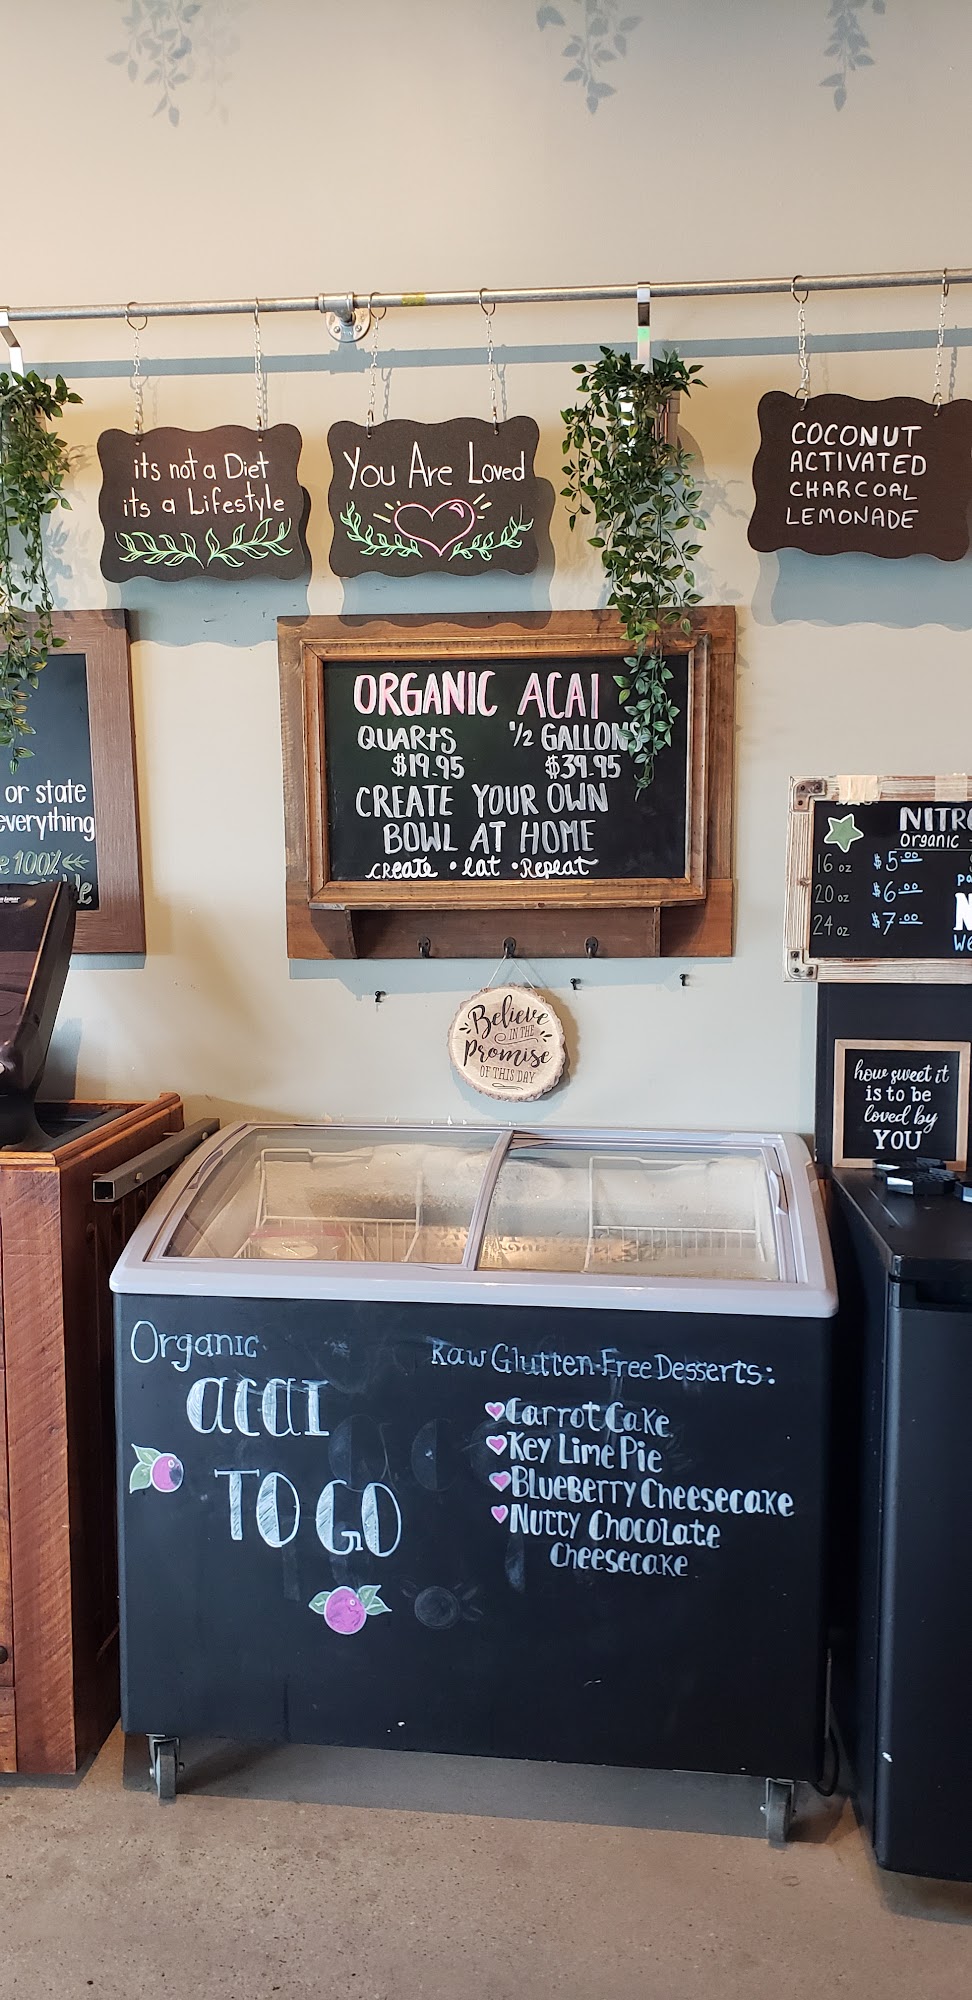 its not a Diet
its a Lifestyle
You Are Loved
COCONUT
ACTIVATED
CHARCOAL
LEMONADE
or state
everything
100%
ORGANIC ACAI
QUARTS ½ GALLONS
$19.95 $39.95
CREATE YOUR OWN
BOWL AT HOME
create • Eat • Repeat
NITR
Organic
16 oz $5.00
20 oz $6.00
24 oz $7.00
Believe
IN THE
Promise
OF THIS DAY
how sweet it
is to be
loved by
YOU
Organic
acai
TO GO
Raw Glutten-Free Desserts:
Carrot Cake
Key Lime Pie
Blueberry Cheesecake
Nutty Chocolate
Cheesecake